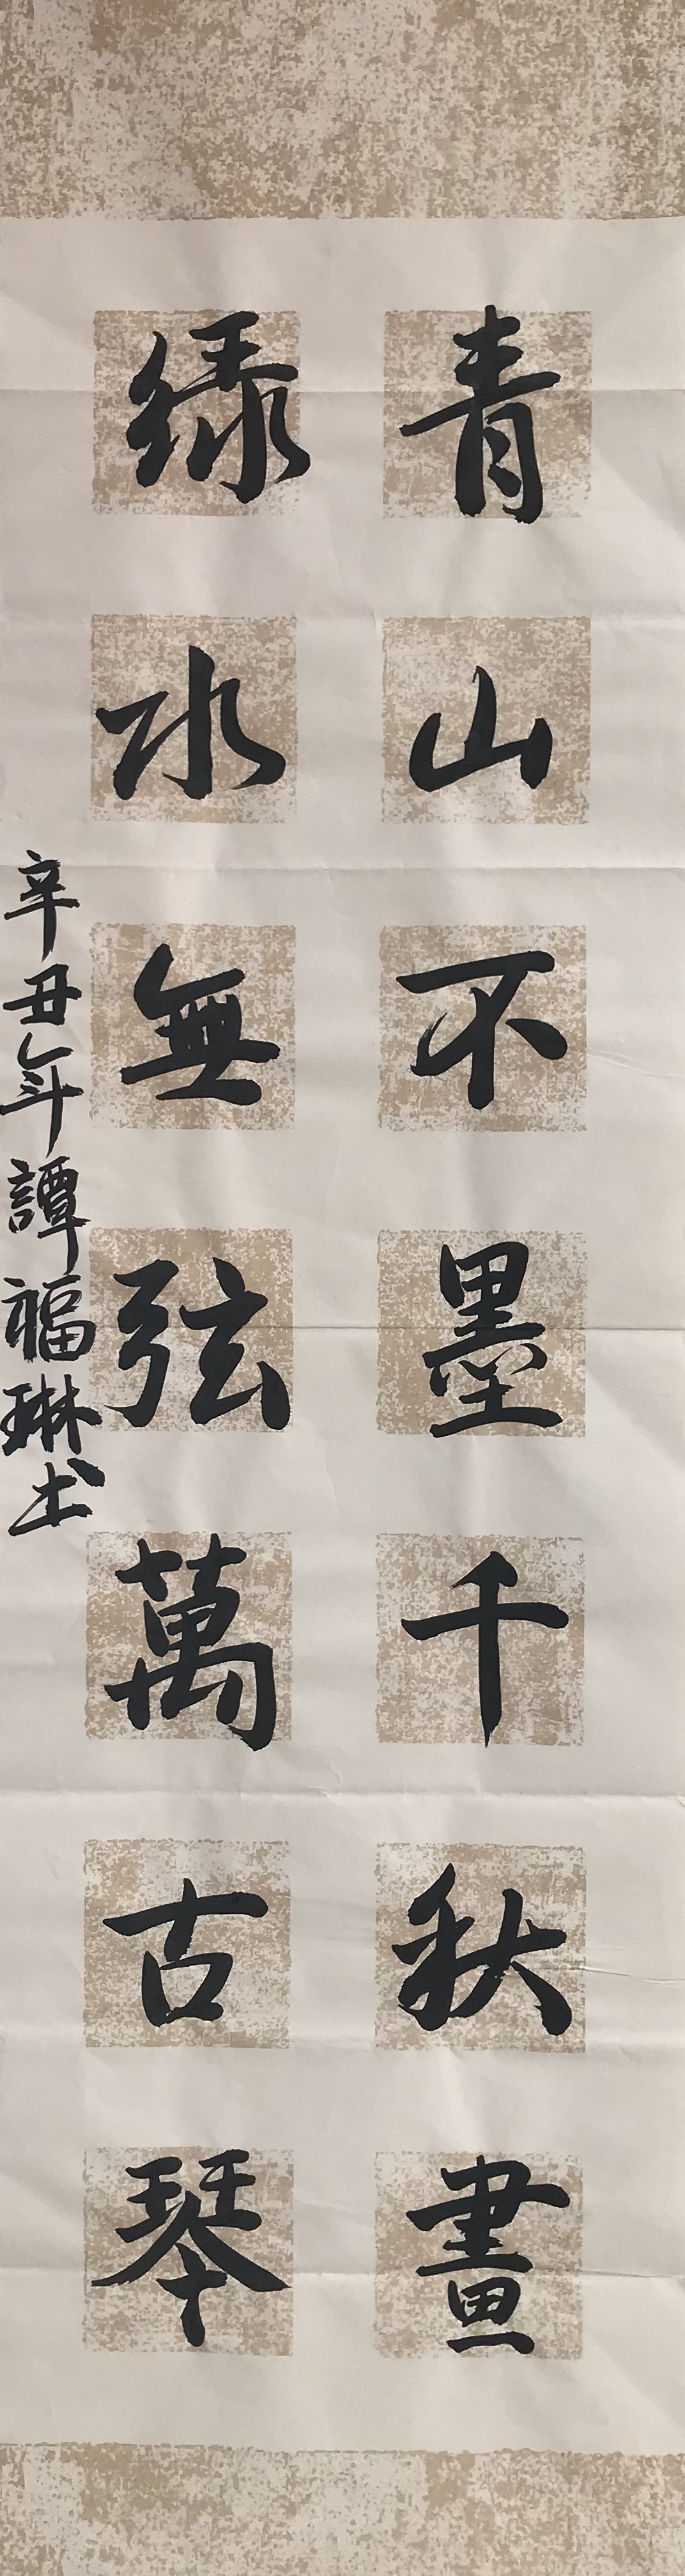 青山不墨千秋畫
绿水無弦萬古琴
辛丑年譚福琳书